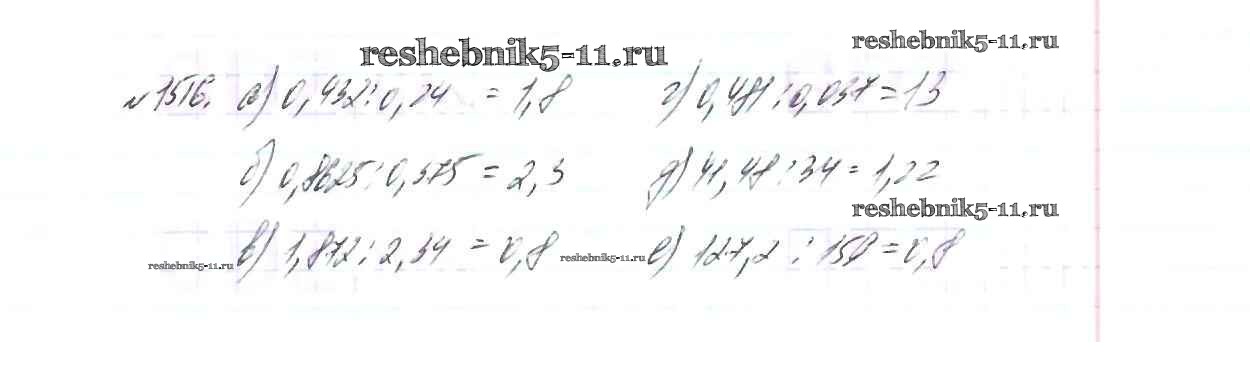 reshebnik5-11.ru
reshebnik5-11.ru
№1516. а) 0,432:0,24 = 1,8 г) 0,481:0,037=13
б) 0,8625:0,375 = 2,3 д) 41,48:34=1,22
reshebnik5-11.ru
в) 1,872:2,34 = 0,8 е) 127,2:159=0,8
reshebnik5-11.ru reshebnik5-11.ru